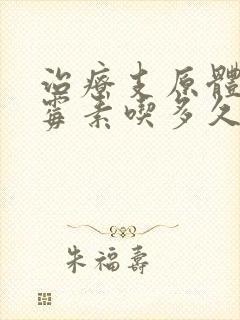 治療支原體
霉素喫多久
朱福壽